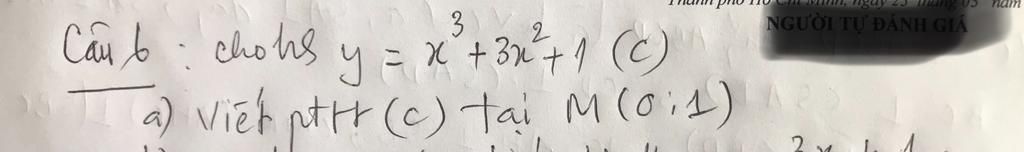 Thành phố Hồ Chí Minh, ngày 25 tháng 05 năm
NGƯỜI TỰ ĐÁNH GIÁ
Câu 6 : cho hs y = x³ + 3x² + 1 (C)
a) Viết pttt (C) tại M(0;1)